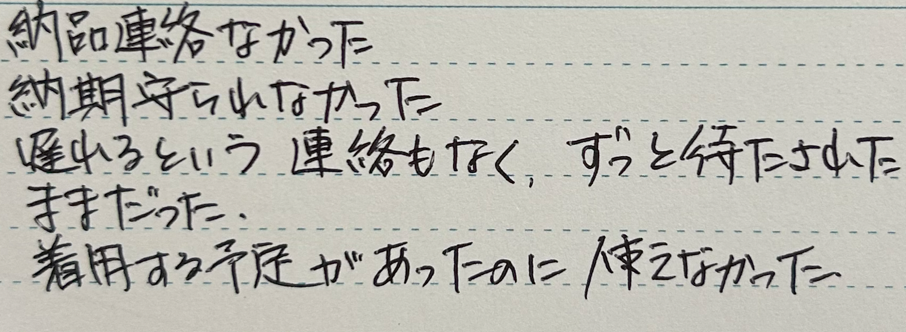 納品連絡なかった
納期守られなかった
遅れるという連絡もなく、ずっと待たされた
ままだった.
着用する予定があったのに使えなかった